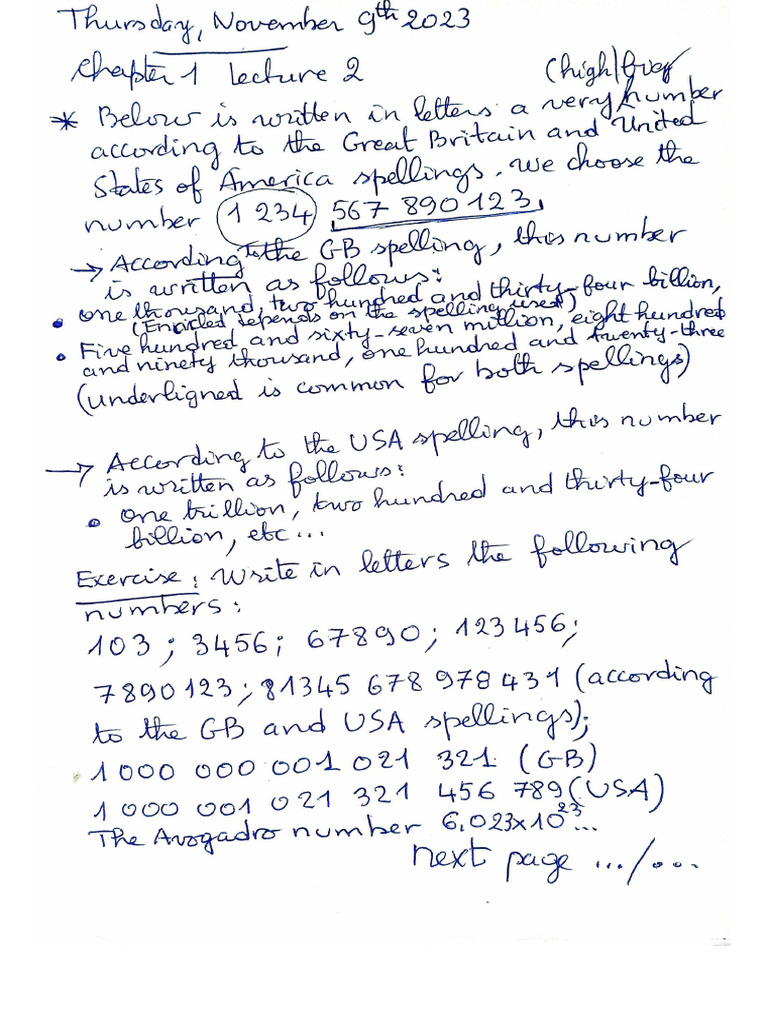 Thursday, November 9th 2023
Chapter 1 Lecture 2 (high)
* Below is written in letters a very number
according to the Great Britain and United
States of America spellings. We choose the
number 1 234 567 890 123.
→ According to the GB spelling, this number
is written as follows:
• One thousand, two hundred and thirty-four billion,
(Encircled depends on the spelling used)
• Five hundred and sixty-seven million, eight hundred
and ninety thousand, one hundred and twenty-three
(underligned is common for both spellings)
→ According to the USA spelling, this number
is written as follows:
• One trillion, two hundred and thirty-four
billion, etc...
Exercise: Write in letters the following
numbers:
103 ; 3456 ; 67890 ; 123 456 ;
7890123 ; 81345 678 978 431 (according
to the GB and USA spellings);
1 000 000 001 021 321 (GB)
1 000 001 021 321 456 789 (USA)
The Avogadro number 6.023x10^23...
next page .../...